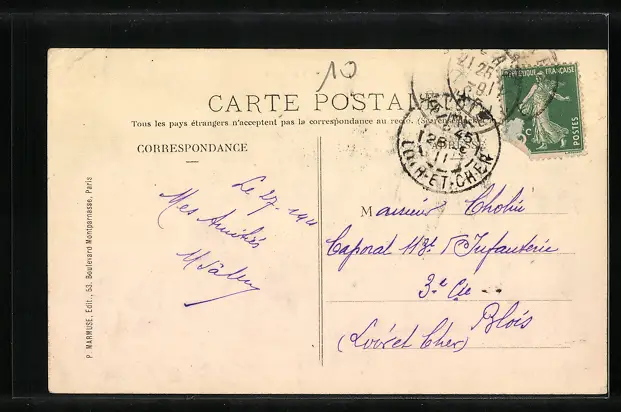 10
CARTE POSTALE
Tous les pays étrangers n'acceptent pas la correspondance au recto.
CORRESPONDANCE
ADRESSE
RÉPUBLIQUE FRANÇAISE
POSTES
LOIR-ET-CHER
Le 27
Mes Amitiés
Monsieur Cholin
Caporal 113e Infanterie
3e Cie
Blois
(Loir et Cher)
P. MARMUSE, Edit., 53, Boulevard Montparnasse, Paris